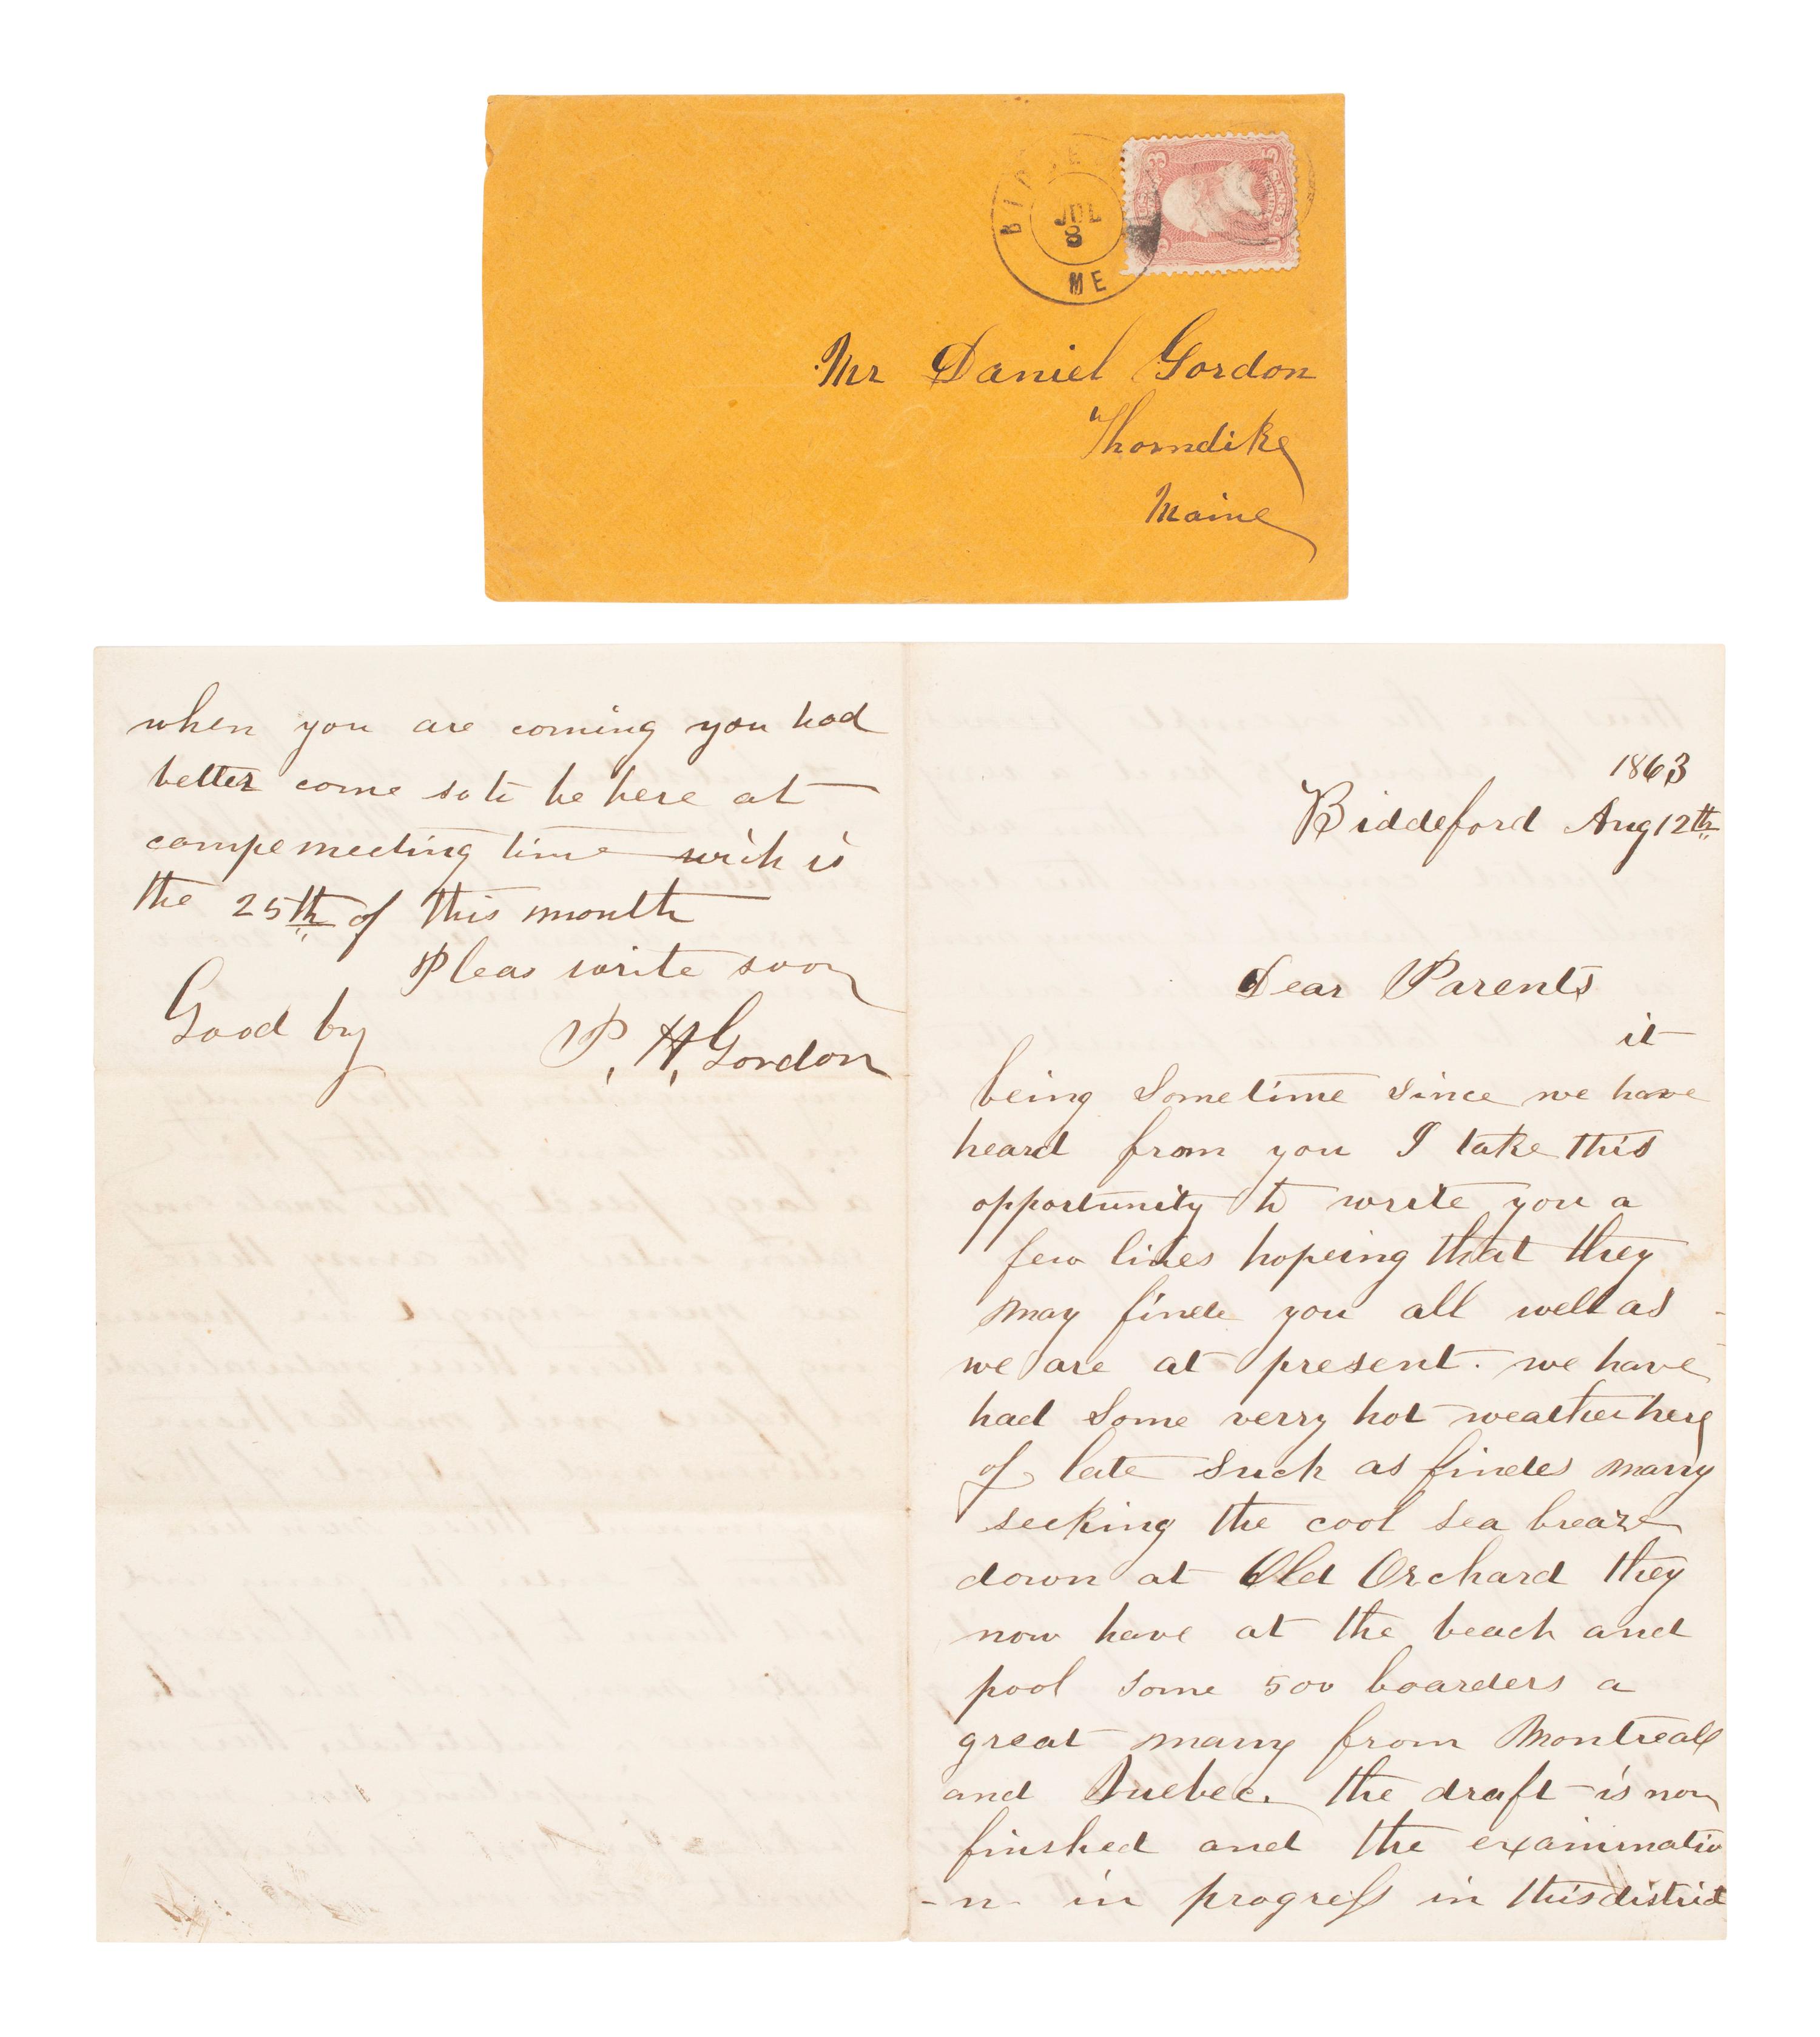 JUL
8
ME
Mr Daniel Gordon
Thorndike
Maine
when you are coming you had
better come so to be here at
campemeeting time wich is
the 25th of this month
Pleas write soon
Good by P. H. Gordon
1863
Biddeford Aug 12th
Dear Parents
it
being sometime since we have
heard from you I take this
opportunity to write you a
few lines hopeing that they
may finde you all well as
we are at present. we have
had some verry hot weather here
of late such as findes many
seeking the cool sea breaze
down at Old Orchard they
now have at the beach and
pool some 500 boarders a
great many from Montreall
and Quebec. the draft is now
finshed and the examinatio
-n in progress in this district